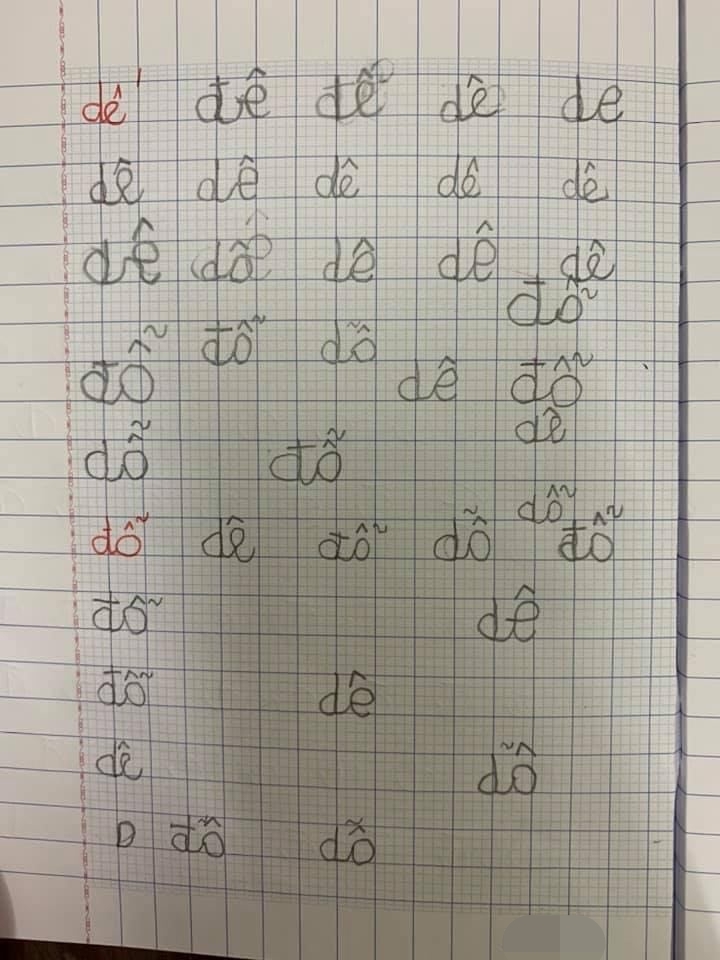 dê đê dễ dê de
dê dê dê dê dê
dê dỗ dê dê dê
đỗ
đỗ đỗ dỗ dê đỗ
dê
dỗ đỗ
dỗ
dỗ dê đỗ dỗ đỗ
đỗ dê
đỗ dê
dê dỗ
D đỗ dỗ